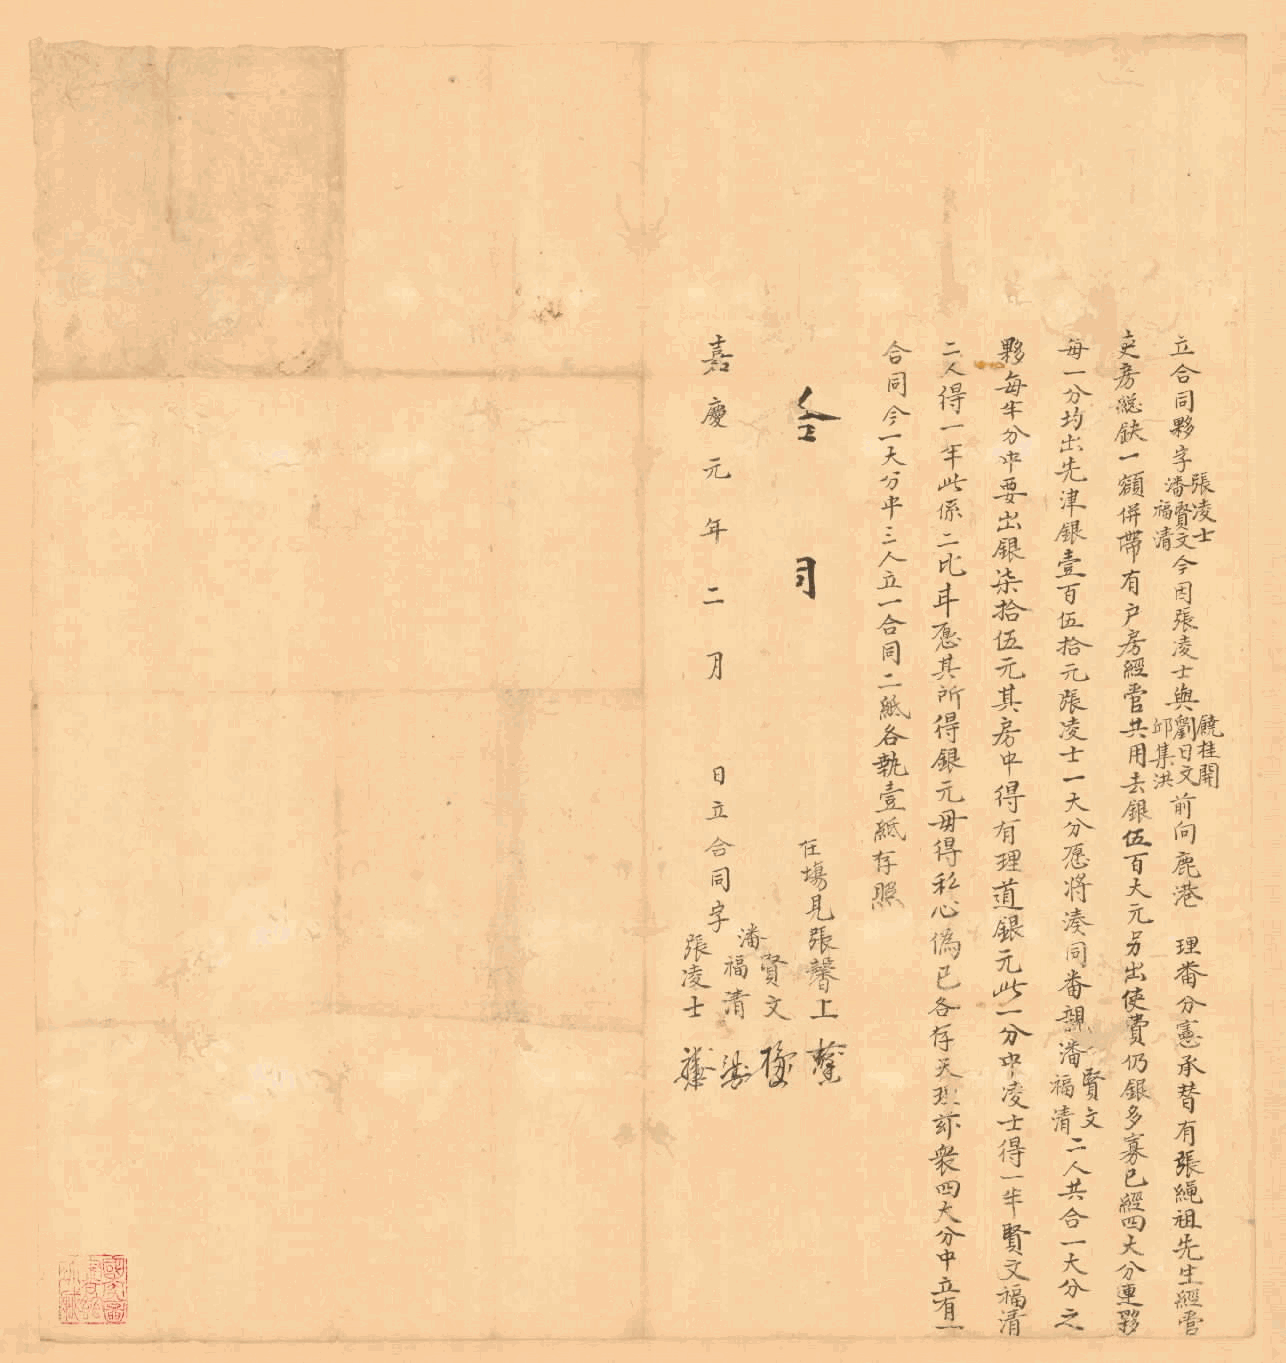 立合同夥字張凌士潘賢文福清今因張凌士與饒桂開劉日文邱集洪前向鹿港 理番分憲承替有張繩祖先生經营
吏房総缺一額併帶有户房經营共用去銀伍百大元另出使費仍銀多寡已經四大分連夥
每一分均出先津銀壹百伍拾元張凌士一大分愿将湊同番親潘賢文福清二人共合一大分之
夥每半分中要出銀柒拾伍元其房中得有理道銀元此一分中凌士得一半賢文福清
二人得一半此係二比甘愿其所得銀元毋得私心偽己各存天理亦衆四大分中立有一
合同今一大分中三人立一合同二紙各執壹紙存照
合同
在塲見張馨上
潘賢文
福清
嘉慶元年二月 日立合同字張凌士